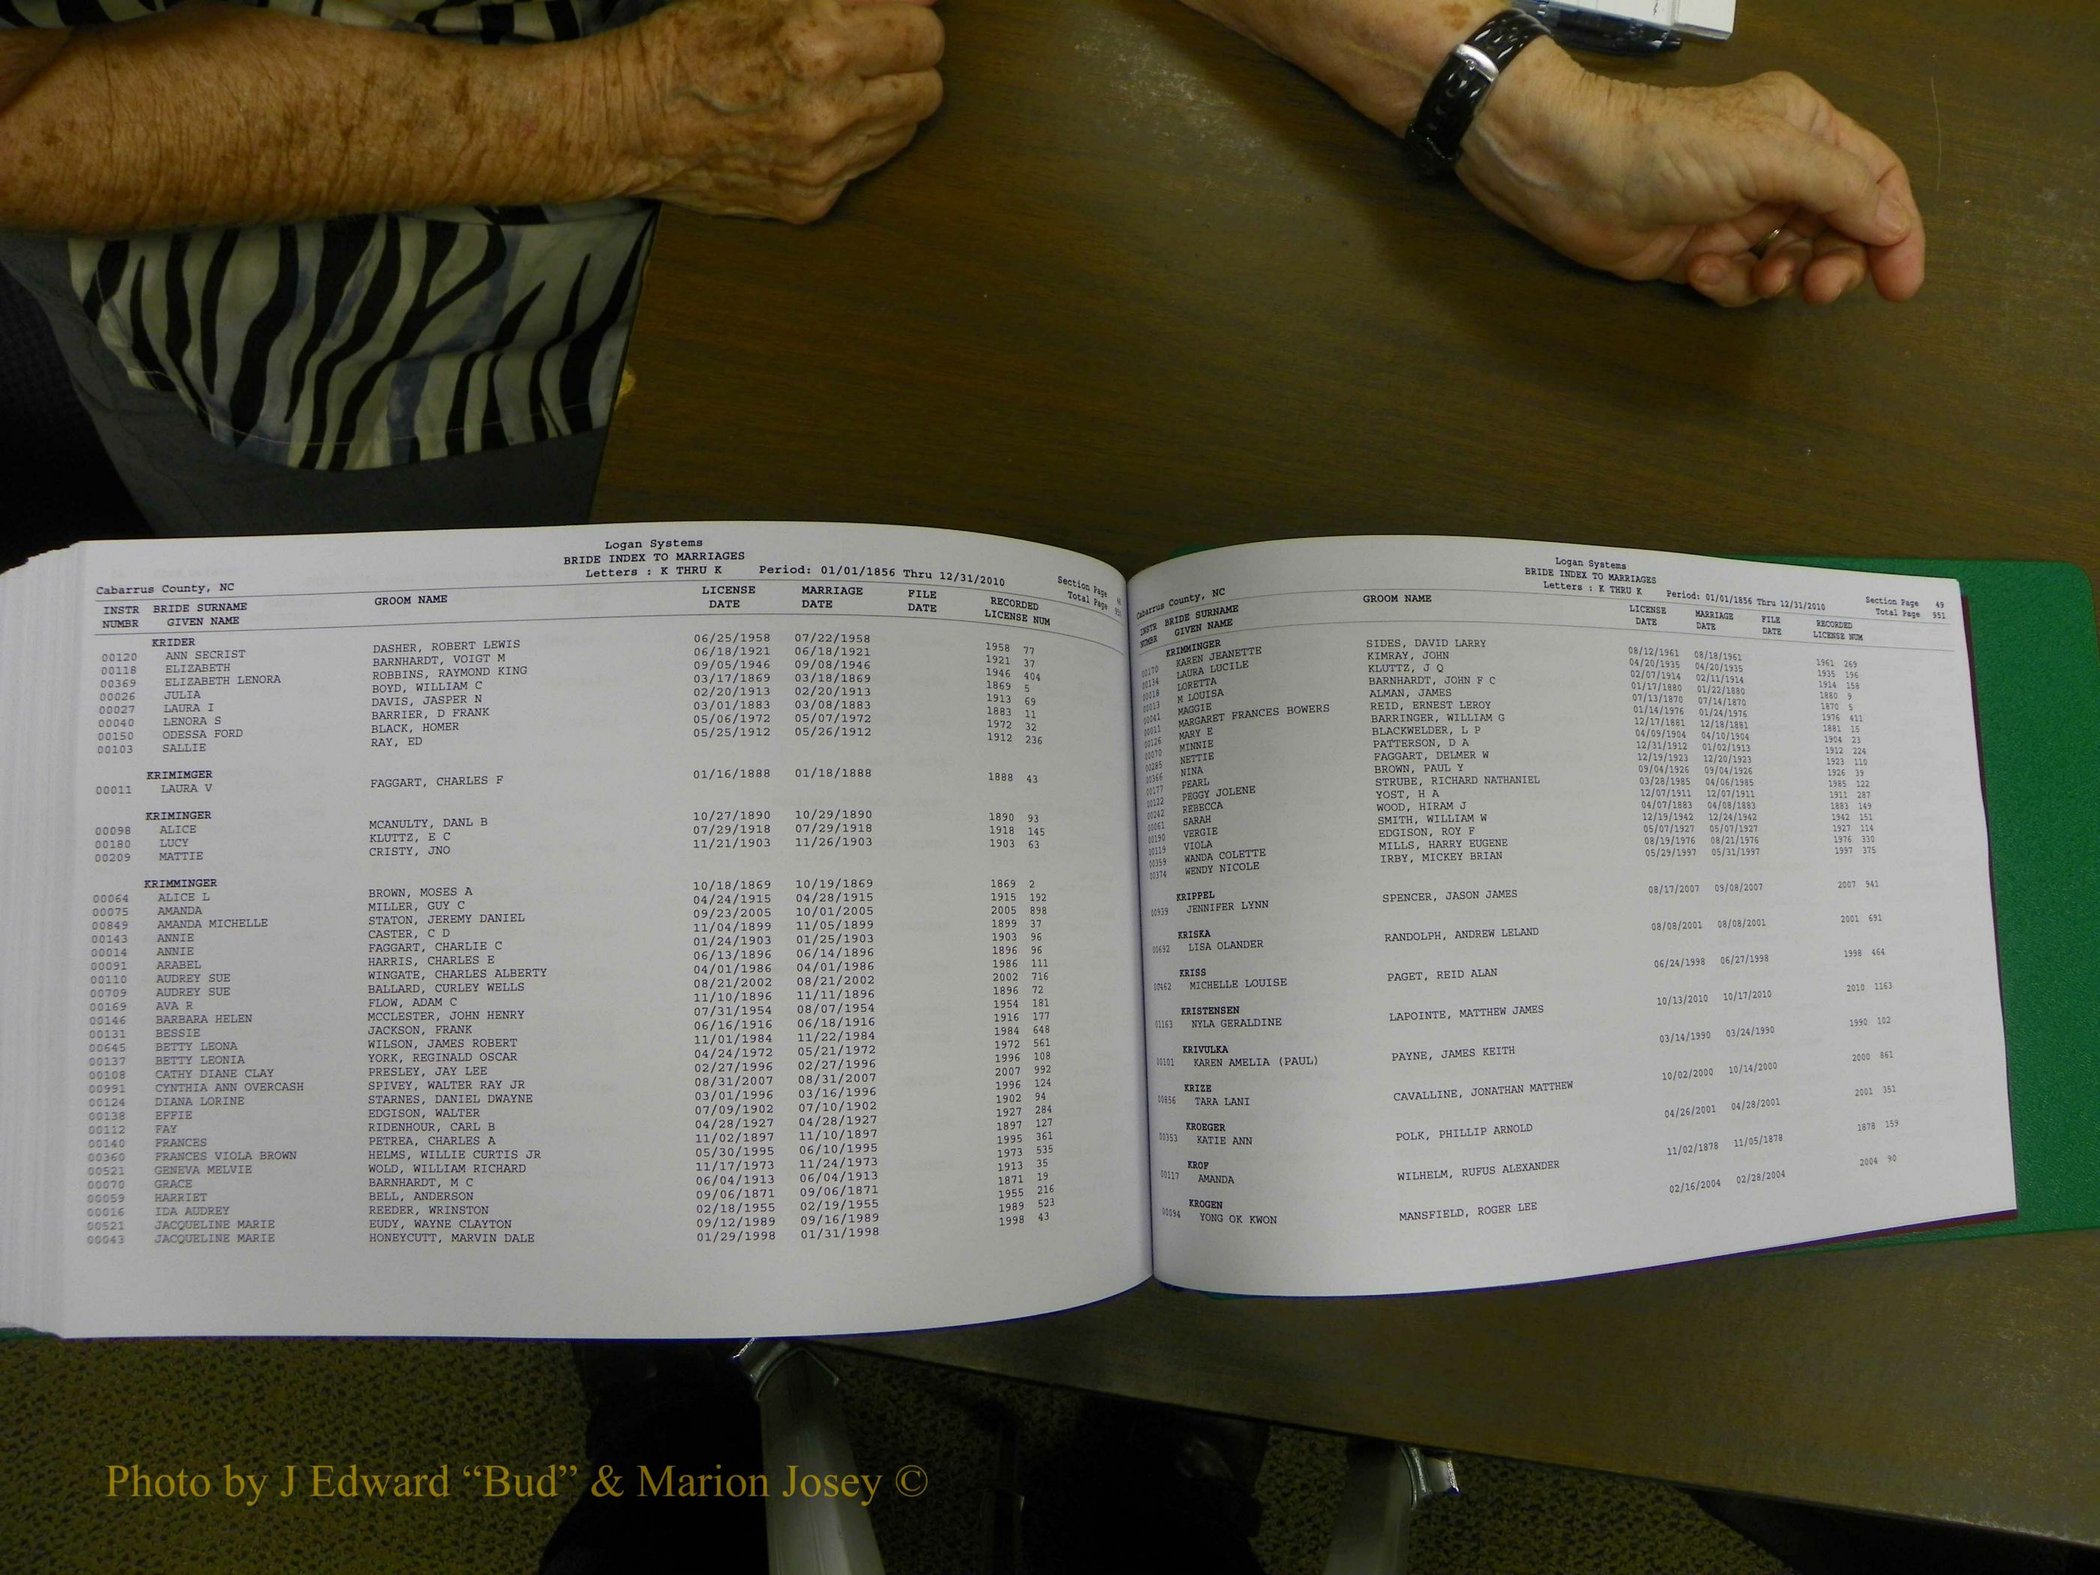 Logan Systems
BRIDE INDEX TO MARRIAGES
Letters : K THRU K Period: 01/01/1856 Thru 12/31/2010
Cabarrus County, NC Section Page
Total Page 951
INSTR NUMBR BRIDE SURNAME GIVEN NAME GROOM NAME LICENSE DATE MARRIAGE DATE FILE DATE RECORDED LICENSE NUM
KRIDER
00120 ANN SECRIST DASHER, ROBERT LEWIS 06/25/1958 07/22/1958 1958 77
00118 ELIZABETH BARNHARDT, VOIGT M 06/18/1921 06/18/1921 1921 37
00369 ELIZABETH LENORA ROBBINS, RAYMOND KING 09/05/1946 09/08/1946 1946 404
00026 JULIA BOYD, WILLIAM C 03/17/1869 03/18/1869 1869 5
00027 LAURA I DAVIS, JASPER N 02/20/1913 02/20/1913 1913 69
00040 LENORA S BARRIER, D FRANK 03/01/1883 03/08/1883 1883 11
00150 ODESSA FORD BLACK, HOMER 05/06/1972 05/07/1972 1972 32
00103 SALLIE RAY, ED 05/25/1912 05/26/1912 1912 236
KRIMIMGER
00011 LAURA V FAGGART, CHARLES F 01/16/1888 01/18/1888 1888 43
KRIMINGER
00098 ALICE MCANULTY, DANL B 10/27/1890 10/29/1890 1890 93
00180 LUCY KLUTTZ, E C 07/29/1918 07/29/1918 1918 145
00209 MATTIE CRISTY, JNO 11/21/1903 11/26/1903 1903 63
KRIMMINGER
00064 ALICE L BROWN, MOSES A 10/18/1869 10/19/1869 1869 2
00075 AMANDA MILLER, GUY C 04/24/1915 04/28/1915 1915 192
00849 AMANDA MICHELLE STATON, JEREMY DANIEL 09/23/2005 10/01/2005 2005 898
00143 ANNIE CASTER, C D 11/04/1899 11/05/1899 1899 37
00014 ANNIE FAGGART, CHARLIE C 01/24/1903 01/25/1903 1903 96
00091 ARABEL HARRIS, CHARLES E 06/13/1896 06/14/1896 1896 96
00110 AUDREY SUE WINGATE, CHARLES ALBERTY 04/01/1986 04/01/1986 1986 111
00709 AUDREY SUE BALLARD, CURLEY WELLS 08/21/2002 08/21/2002 2002 716
00169 AVA R FLOW, ADAM C 11/10/1896 11/11/1896 1896 72
00146 BARBARA HELEN MCCLESTER, JOHN HENRY 07/31/1954 08/07/1954 1954 181
00131 BESSIE JACKSON, FRANK 06/16/1916 06/18/1916 1916 177
00645 BETTY LEONA WILSON, JAMES ROBERT 11/01/1984 11/22/1984 1984 648
00137 BETTY LEONIA YORK, REGINALD OSCAR 04/24/1972 05/21/1972 1972 561
00108 CATHY DIANE CLAY PRESLEY, JAY LEE 02/27/1996 02/27/1996 1996 108
00991 CYNTHIA ANN OVERCASH SPIVEY, WALTER RAY JR 08/31/2007 08/31/2007 2007 992
00124 DIANA LORINE STARNES, DANIEL DWAYNE 03/01/1996 03/16/1996 1996 124
00138 EFFIE EDGISON, WALTER 07/09/1902 07/10/1902 1902 94
00112 FAY RIDENHOUR, CARL B 04/28/1927 04/28/1927 1927 284
00140 FRANCES PETREA, CHARLES A 11/02/1897 11/10/1897 1897 127
00360 FRANCES VIOLA BROWN HELMS, WILLIE CURTIS JR 05/30/1995 06/10/1995 1995 361
00521 GENEVA MELVIE WOLD, WILLIAM RICHARD 11/17/1973 11/24/1973 1973 535
00070 GRACE BARNHARDT, M C 06/04/1913 06/04/1913 1913 35
00059 HARRIET BELL, ANDERSON 09/06/1871 09/06/1871 1871 19
00016 IDA AUDREY REEDER, WRINSTON 02/18/1955 02/19/1955 1955 216
00521 JACQUELINE MARIE EUDY, WAYNE CLAYTON 09/12/1989 09/16/1989 1989 523
00043 JACQUELINE MARIE HONEYCUTT, MARVIN DALE 01/29/1998 01/31/1998 1998 43
Logan Systems
BRIDE INDEX TO MARRIAGES
Letters : K THRU K Period: 01/01/1856 Thru 12/31/2010
Cabarrus County, NC Section Page 49
Total Page 951
INSTR NUMBR BRIDE SURNAME GIVEN NAME GROOM NAME LICENSE DATE MARRIAGE DATE FILE DATE RECORDED LICENSE NUM
KRIMMINGER
00170 KAREN JEANETTE SIDES, DAVID LARRY 08/12/1961 08/18/1961 1961 269
00134 LAURA LUCILE KIMRAY, JOHN 04/20/1935 04/20/1935 1935 196
00018 LORETTA KLUTTZ, J Q 02/07/1914 02/11/1914 1914 158
00013 M LOUISA BARNHARDT, JOHN F C 01/17/1880 01/22/1880 1880 9
00041 MAGGIE ALMAN, JAMES 07/13/1870 07/14/1870 1870 5
00011 MARGARET FRANCES BOWERS REID, ERNEST LEROY 01/14/1976 01/24/1976 1976 411
00126 MARY E BARRINGER, WILLIAM G 12/17/1881 12/18/1881 1881 15
00070 MINNIE BLACKWELDER, L P 04/09/1904 04/10/1904 1904 23
00285 NETTIE PATTERSON, D A 12/31/1912 01/02/1913 1912 224
00366 NINA FAGGART, DELMER W 12/19/1923 12/20/1923 1923 110
00177 PEARL BROWN, PAUL Y 09/04/1926 09/04/1926 1926 39
00122 PEGGY JOLENE STRUBE, RICHARD NATHANIEL 03/28/1985 04/06/1985 1985 122
00242 REBECCA YOST, H A 12/07/1911 12/07/1911 1911 287
00061 SARAH WOOD, HIRAM J 04/07/1883 04/08/1883 1883 149
00190 VERGIE SMITH, WILLIAM W 12/19/1942 12/24/1942 1942 151
00119 VIOLA EDGISON, ROY F 05/07/1927 05/07/1927 1927 114
00359 WANDA COLETTE MILLS, HARRY EUGENE 08/19/1976 08/21/1976 1976 330
00374 WENDY NICOLE IRBY, MICKEY BRIAN 05/29/1997 05/31/1997 1997 375
KRIPPEL
00939 JENNIFER LYNN SPENCER, JASON JAMES 08/17/2007 09/08/2007 2007 941
KRISKA
00692 LISA OLANDER RANDOLPH, ANDREW LELAND 08/08/2001 08/08/2001 2001 691
KRISS
00462 MICHELLE LOUISE PAGET, REID ALAN 06/24/1998 06/27/1998 1998 464
KRISTENSEN
01163 NYLA GERALDINE LAPOINTE, MATTHEW JAMES 10/13/2010 10/17/2010 2010 1163
KRIVULKA
00101 KAREN AMELIA (PAUL) PAYNE, JAMES KEITH 03/14/1990 03/24/1990 1990 102
KRIZE
00856 TARA LANI CAVALLINE, JONATHAN MATTHEW 10/02/2000 10/14/2000 2000 861
KROEGER
00353 KATIE ANN POLK, PHILLIP ARNOLD 04/26/2001 04/28/2001 2001 351
KROF
00117 AMANDA WILHELM, RUFUS ALEXANDER 11/02/1878 11/05/1878 1878 159
KROGEN
00094 YONG OK KWON MANSFIELD, ROGER LEE 02/16/2004 02/28/2004 2004 90
Photo by J Edward “Bud” & Marion Josey ©